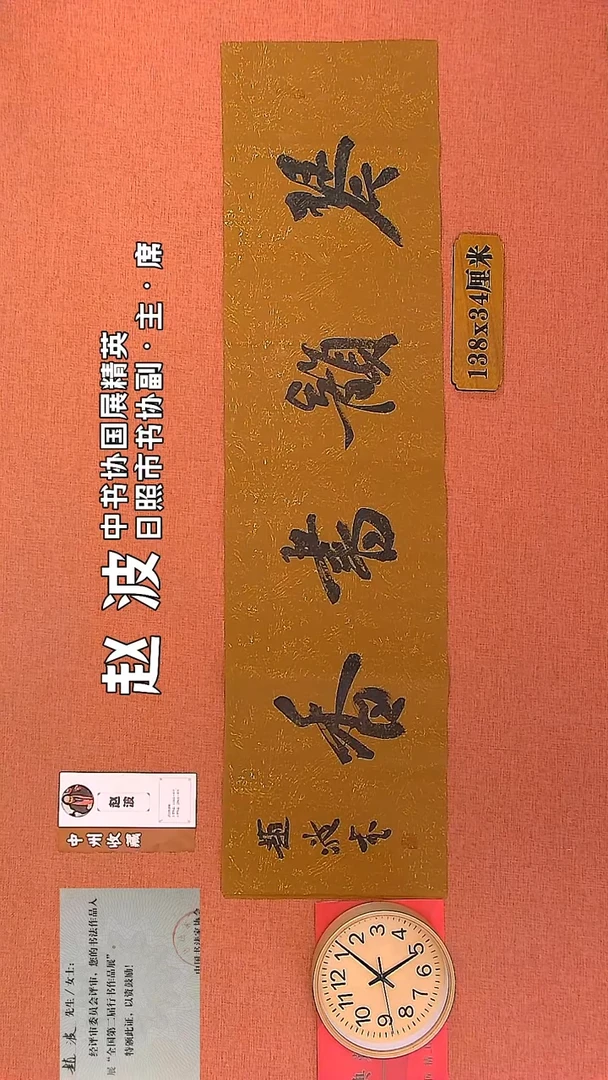 赵波
中书协国展精英
日照市书协副·主·席
琴韻書香
趙波
138x34厘米
赵波
中州收藏
趙波 先生/女士：
经评审委员会评审，您的书法作品入
展“全国第二届行书作品展”。
特颁此证，以资鼓励！
中国书法家协会
12 1 2 3 4 5 6 7 8 9 10 11